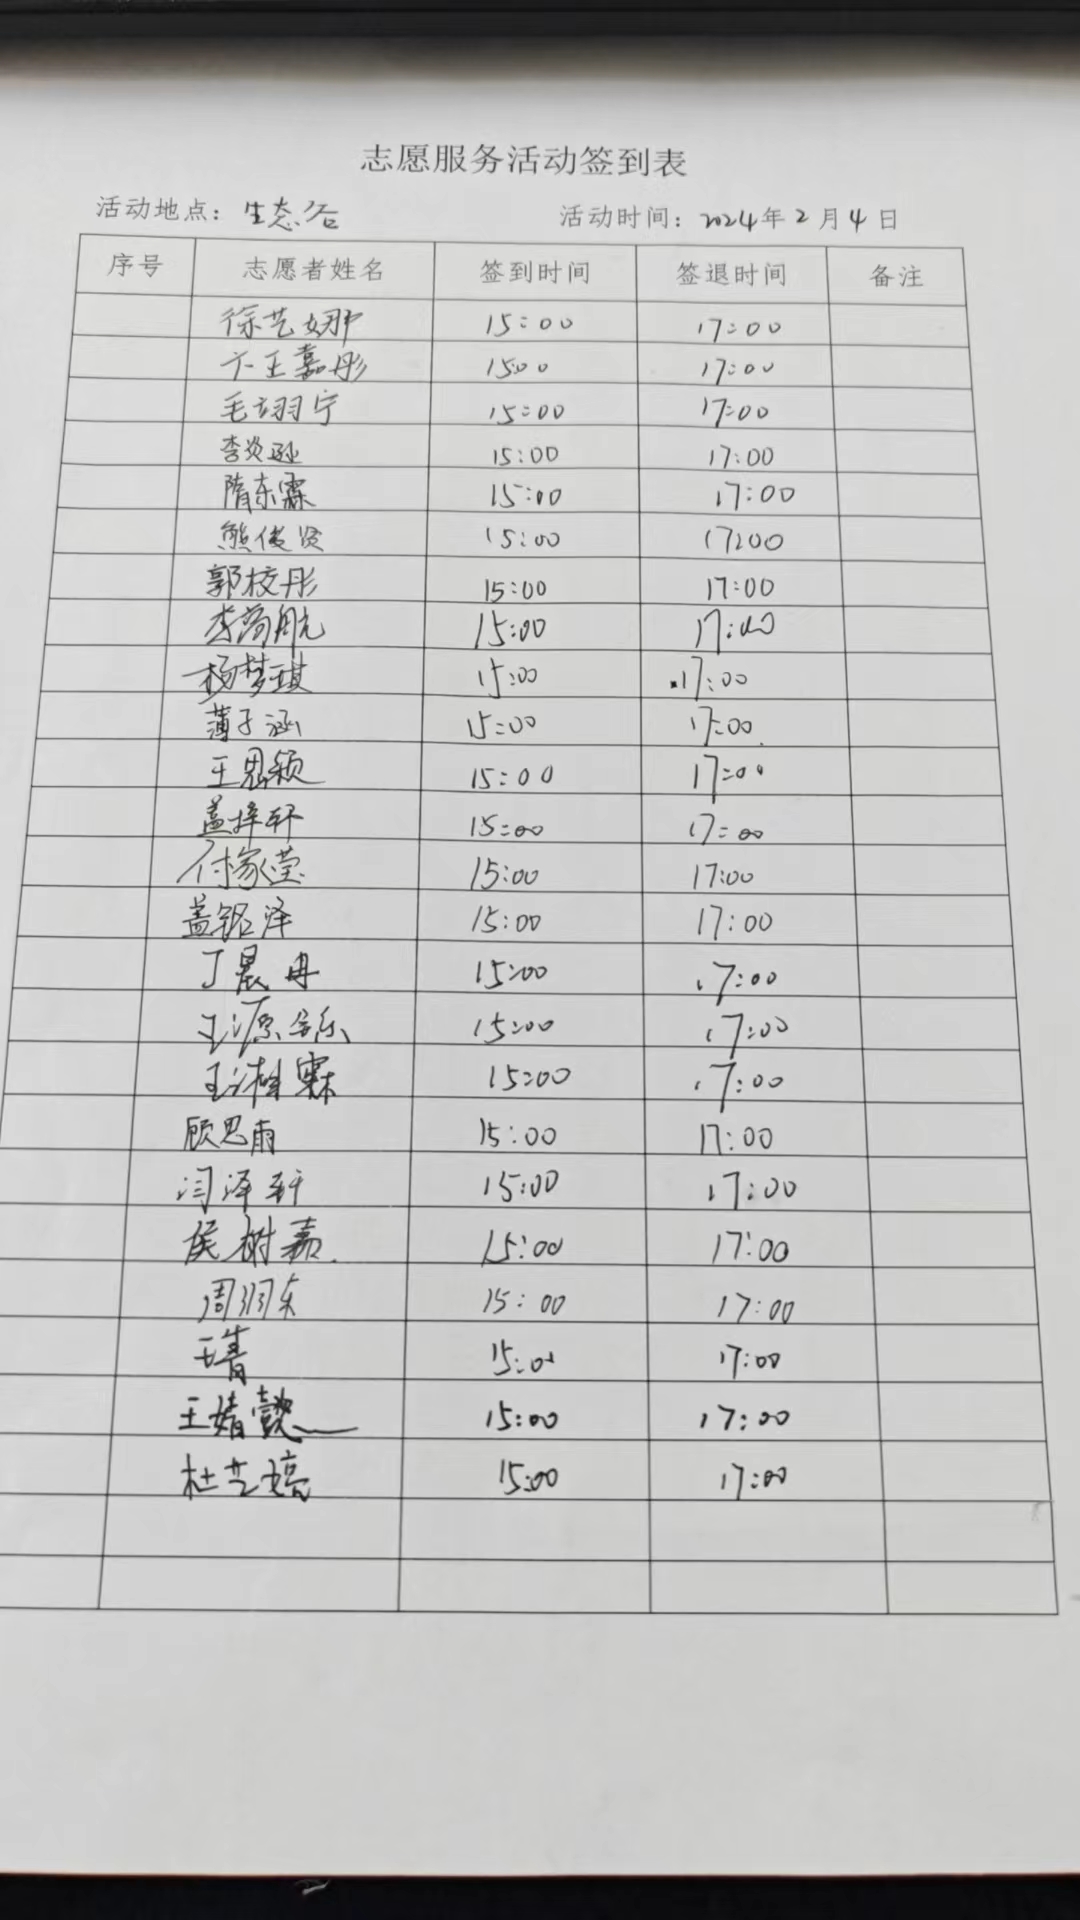 志愿服务活动签到表
活动地点：生态谷 活动时间：2024年2月4日
序号 志愿者姓名 签到时间 签退时间 备注
徐艺娜 15:00 17:00
卞王嘉彤 1500 17:00
毛翊宁 15:00 17:00
李炎 15:00 17:00
隋东霖 15:00 17:00
熊俊贤 15:00 17:00
郭校彤 15:00 17:00
李尚航 15:00 17:00
杨梦琪 15:00 17:00
薄子涵 15:00 17:00
王思颖 15:00 17:00
盖梓轩 15:00 17:00
付家莹 15:00 17:00
盖铭泽 15:00 17:00
丁晨冉 15:00 17:00
王源 乐 15:00 17:00
王湘霖 15:00 17:00
顾思雨 15:00 17:00
闫泽轩 15:00 17:00
侯树嘉 15:00 17:00
周润东 15:00 17:00
王青 15:00 17:00
王婧懿 15:00 17:00
杜艺婷 15:00 17:00